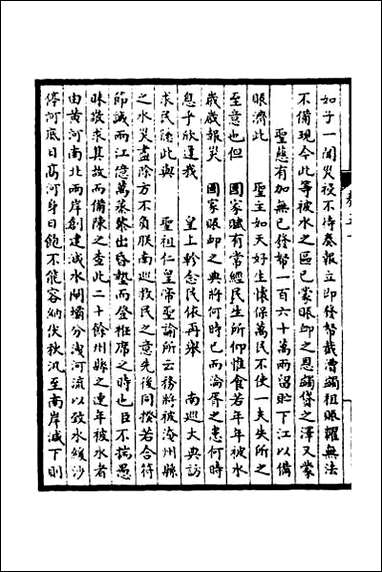 如子一聞災祲不待奏報立即發帑截漕蠲租賑糶無法
不備現今此等被水之區已蒙賑卹之恩蠲貸之澤又蒙
聖慈有加無已發帑一百六十萬兩留貯下江以備
賑濟此　聖主如天好生懷保萬民不使一夫失所之
至意也但　國家賦有常經民生所仰惟食若年年被水
歲歲報災　國家賑卹之典將何時已而淪胥之患何時
息乎欣逢我　皇上軫念民依再舉　南巡大典訪
求民隱此與　聖祖仁皇帝聖諭所云務將被淹州縣
之水災盡除方不負朕南巡救民之意先後同揆若合符
節誠兩江億萬蒸黎出昏墊而登衽席之時也臣不揣愚
昧敬求其故而備陳之查此二十餘州縣之連年被水者
由黃河南北兩岸創建減水閘壩分洩河流以致水緩沙
停河底日高河身日飽不能容納伏秋汛至南岸減下則